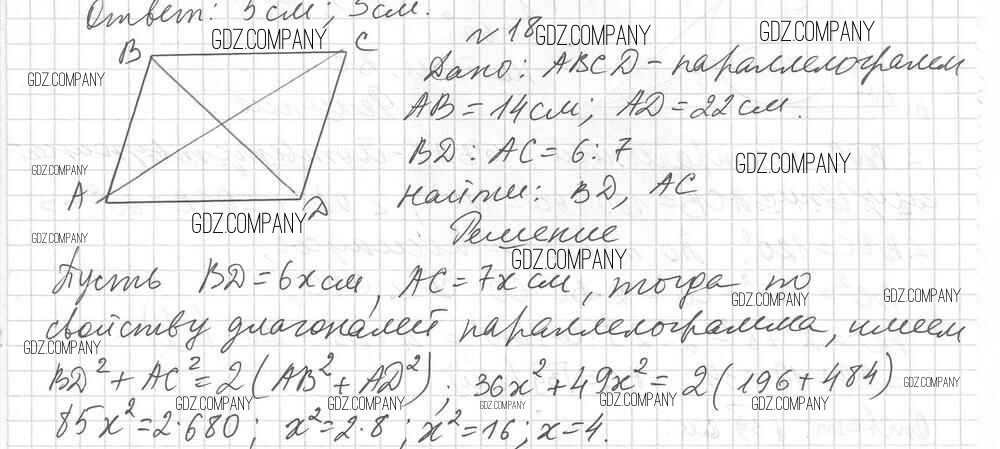 Ответ: 5 см; 5 см.
B C
GDZ.COMPANY
№ 18 GDZ.COMPANY GDZ.COMPANY
GDZ.COMPANY
Дано: ABCD – параллелограмм
AB = 14 см; AD = 22 см.
BD : AC = 6 : 7
GDZ.COMPANY
GDZ.COMPANY
Найти: BD, AC
A D
GDZ.COMPANY
GDZ.COMPANY
Решение
GDZ.COMPANY
Пусть BD = 6x см, AC = 7x см, тогда по
GDZ.COMPANY GDZ.COMPANY
свойству диагоналей параллелограмма, имеем
GDZ.COMPANY
BD² + AC² = 2(AB² + AD²); 36x² + 49x² = 2(196 + 484)
GDZ.COMPANY GDZ.COMPANY GDZ.COMPANY GDZ.COMPANY GDZ.COMPANY GDZ.COMPANY
85x² = 2·680; x² = 2·8; x² = 16; x = 4.